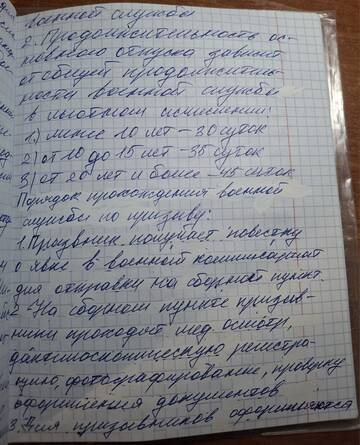 военной службы
2. Продолжительность ос-
новного отпуска зависит
от общей продолжитель-
ности военной службы
в льготном исчислении:
1) менее 10 лет - 30 суток
2) от 10 до 15 лет - 35 суток
3) от 20 лет и более - 45 суток
Порядок прохождения военной
службы по призыву:
1. Призывник получает повестку
о явке в военной комиссариат
для отправки на сборный пункт.
2. На сборном пункте призыв-
ники проходят мед. осмотр,
дактилоскопическую регистра-
цию, фотографирование, проверку
оформления документов
3. Для призывников оформляются